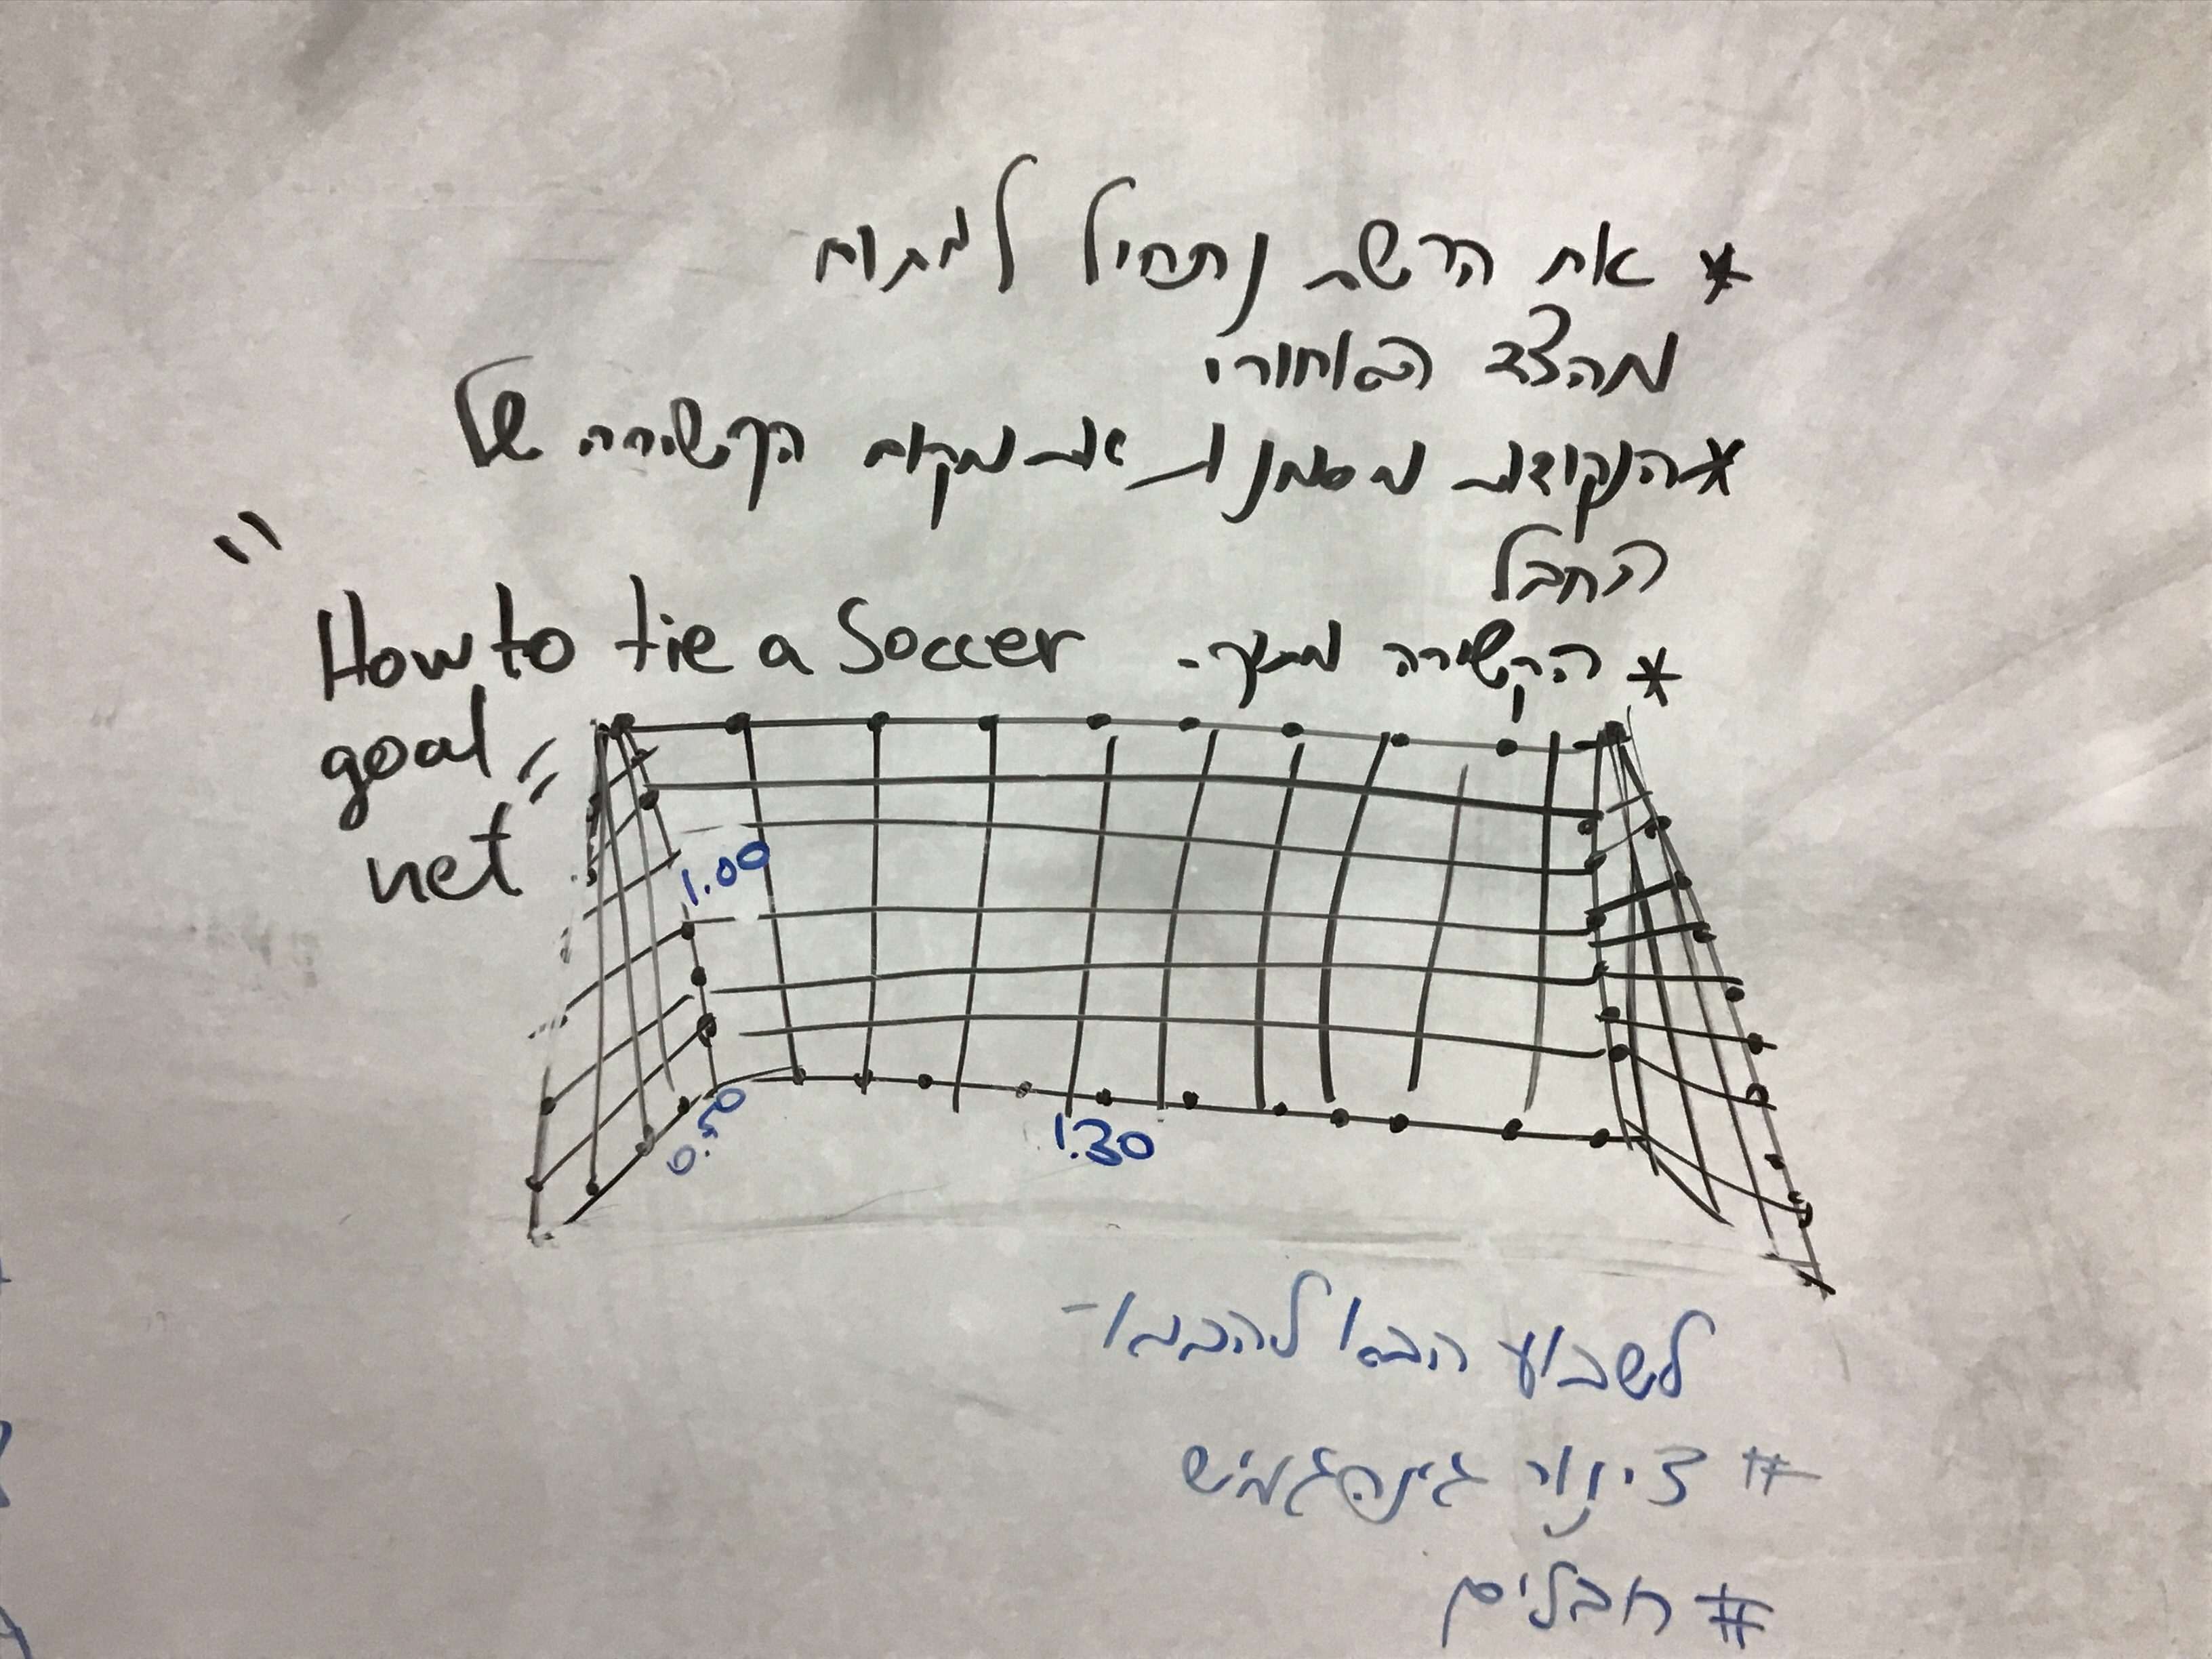 * את הרשת נתחיל למתוח
מהצד האחורי
* הנקודות מסמנות את מקום הקשירה של
החבל
* הקשירה מתוך- "How to tie a Soccer
goal
net"
1.00
0.50
1.30
לשבוע הבא להביא-
# צינור
# חבלים